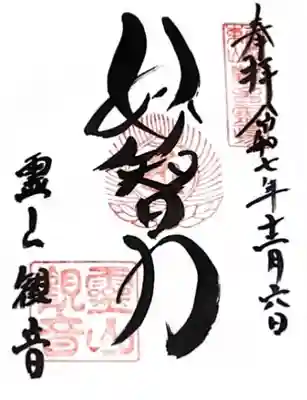 奉拝 令和七年十二月六日
妙智力
霊山観音
靈山
觀音